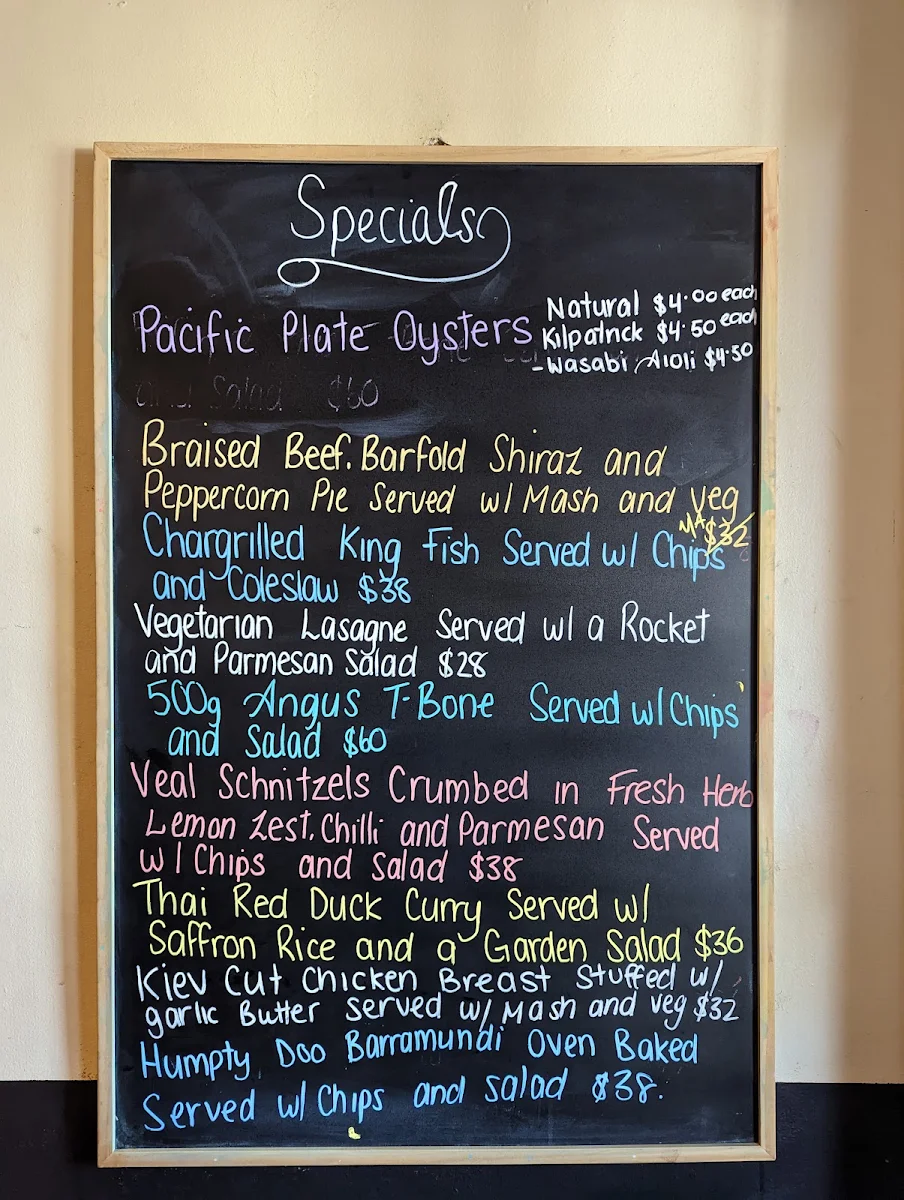 Specials
Pacific Plate Oysters
Natural $4.00 each
Kilpatrick $4.50 each
- Wasabi Aioli $4.50
and Salad $60
Braised Beef. Barfold Shiraz and
Peppercorn Pie Served w/ Mash and Veg
MA $32
Chargrilled King Fish Served w/ Chips
and Coleslaw $38
Vegetarian Lasagne Served w/ a Rocket
and Parmesan Salad $28
500g Angus T-Bone Served w/ Chips
and Salad $60
Veal Schnitzels Crumbed in Fresh Herb
Lemon Zest, Chilli and Parmesan Served
w/ Chips and Salad $38
Thai Red Duck Curry Served w/
Saffron Rice and a Garden Salad $36
Kiev Cut Chicken Breast Stuffed w/
garlic Butter served w/ Mash and veg $32
Humpty Doo Barramundi Oven Baked
Served w/ Chips and salad $38.